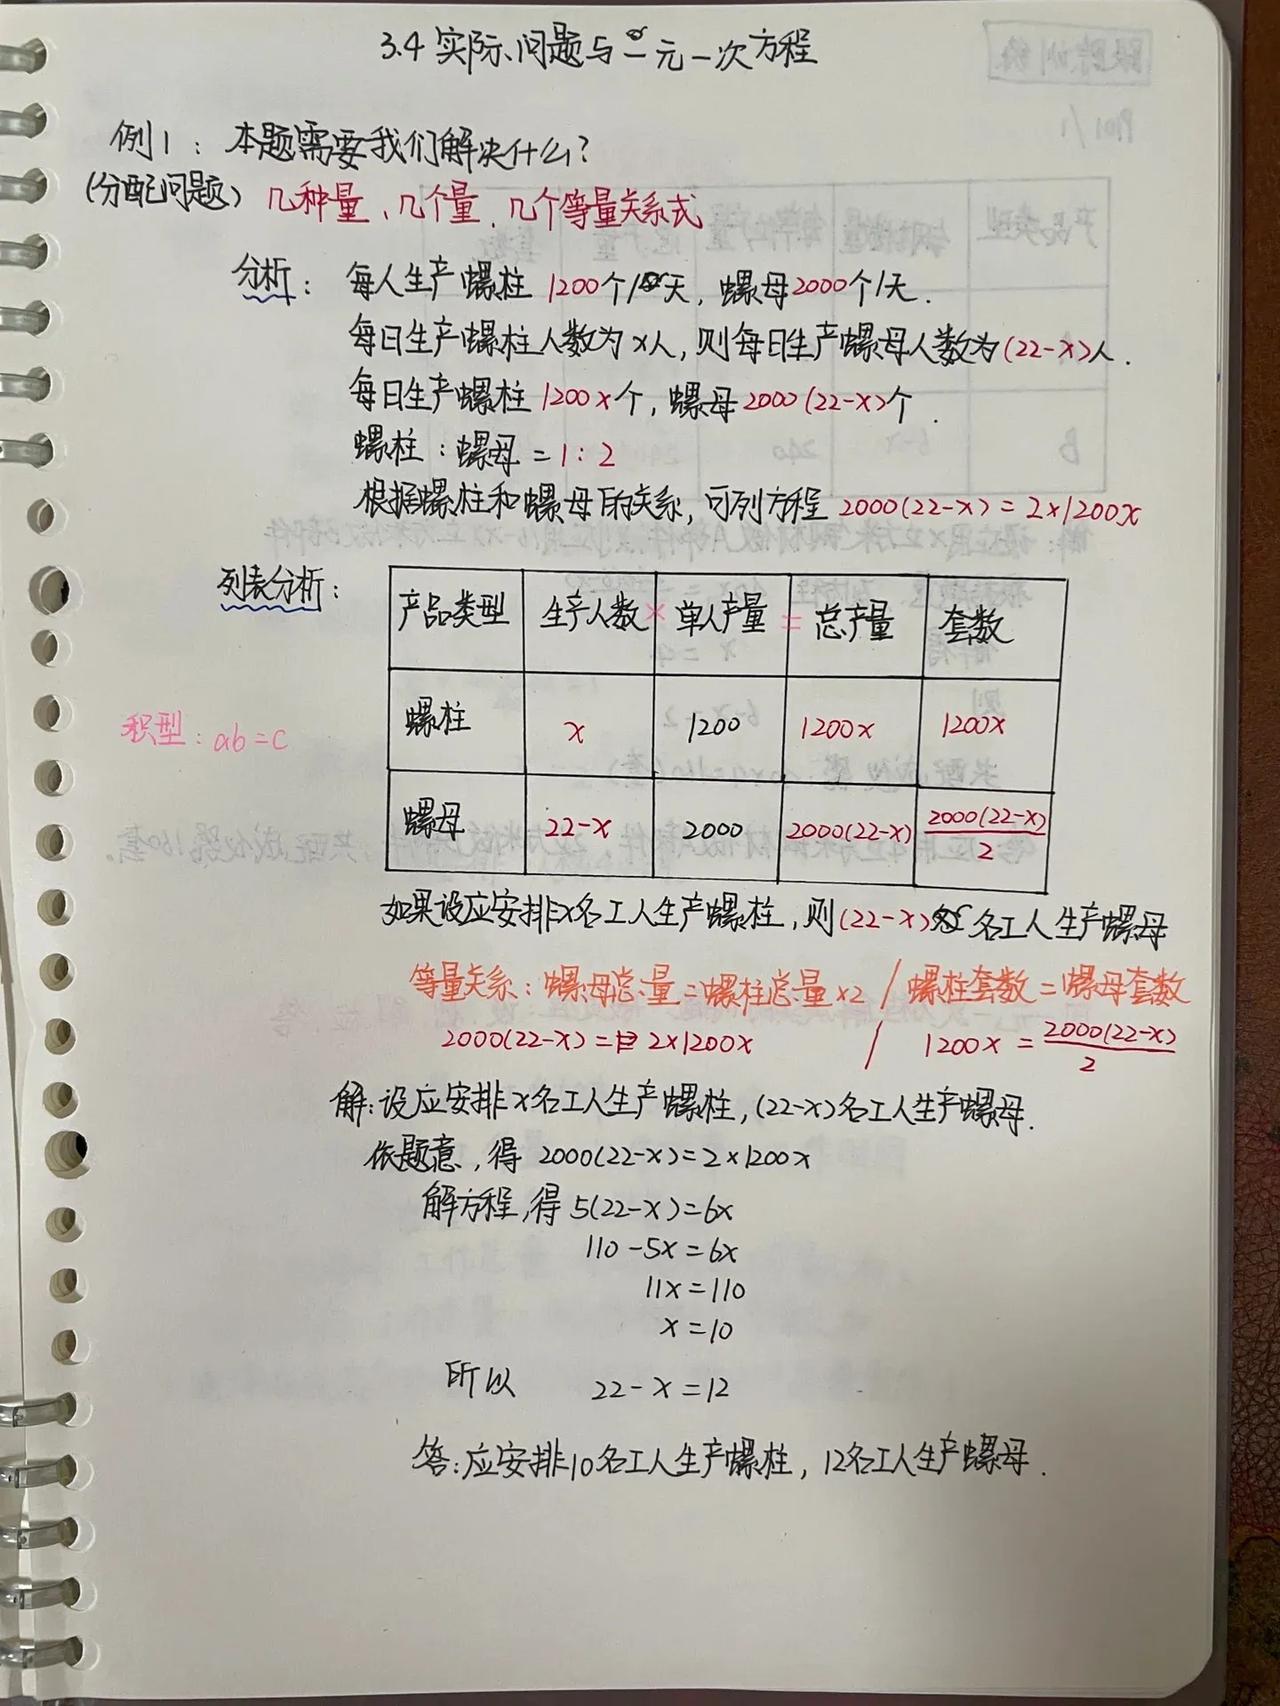 3.4 实际问题与一元一次方程
例1：本题需要我们解决什么？
(分配问题) 几种量、几个量、几个等量关系式
分析： 每人生产螺柱 1200个/天，螺母2000个/天.
每日生产螺柱人数为x人，则每日生产螺母人数为(22-x)人.
每日生产螺柱 1200x个，螺母2000(22-x)个.
螺柱：螺母 = 1：2
根据螺柱和螺母的关系，可列方程 2000(22-x) = 2×1200x
列表分析：
产品类型 生产人数 × 单人产量 = 总产量 套数
螺柱 x 1200 1200x 1200x
积型：ab=c
螺母 22-x 2000 2000(22-x) 2000(22-x)/2
如果设应安排x名工人生产螺柱，则(22-x)名工人生产螺母
等量关系：螺母总量=螺柱总量×2 / 螺柱套数=螺母套数
2000(22-x)=2×1200x / 1200x = 2000(22-x)/2
解：设应安排x名工人生产螺柱，(22-x)名工人生产螺母.
依题意，得 2000(22-x)=2×1200x
解方程，得 5(22-x)=6x
110-5x=6x
11x=110
x=10
所以 22-x=12
答：应安排10名工人生产螺柱，12名工人生产螺母.